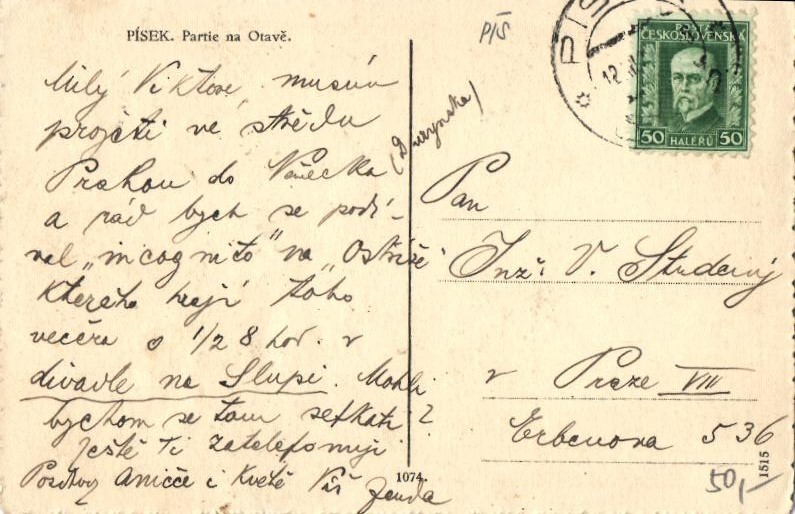 PÍSEK. Partie na Otavě.
Milý Viktore, musím
projeti ve středu
Prahou do Německa (Durynska)
a rád bych se podí-
val „incognito" na „Ostříže"
kterého hrají toho
večera o 1/2 8 hod. v
divadle na Slupi. Mohli
bychom se tam setkati?
Ještě Ti zatelefonuji
Pozdravy Aničce i Květě Váš Zenda
1074.
PÍŠ
PÍS
12
POŠTA
ČESKOSLOVENSKÁ
50 50
HALÉŘŮ
Pan
Inž. V. Studený
v Praze VIII
Erbenova 536
1515
50,-